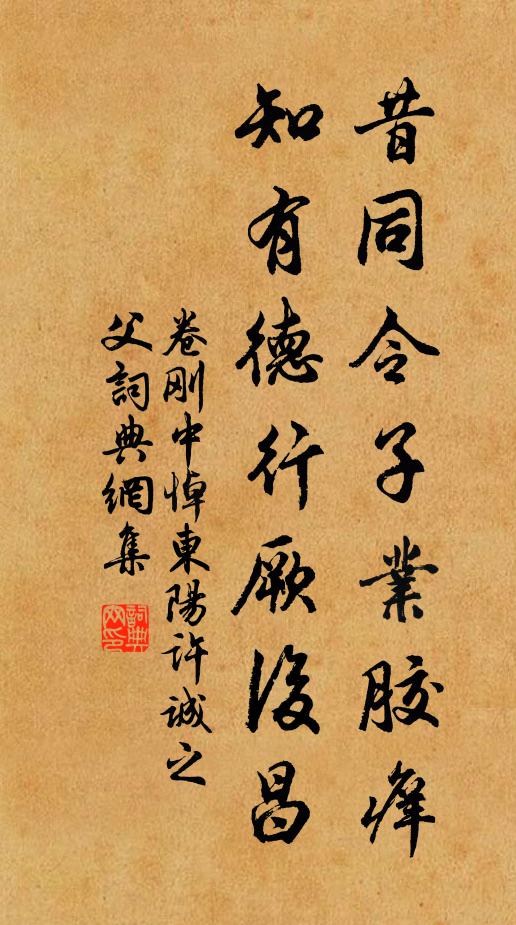 昔同令子業胶痒
知有德行厥後昌
卷刚中悼東陽許誠之
父詞典網集
詞典网印